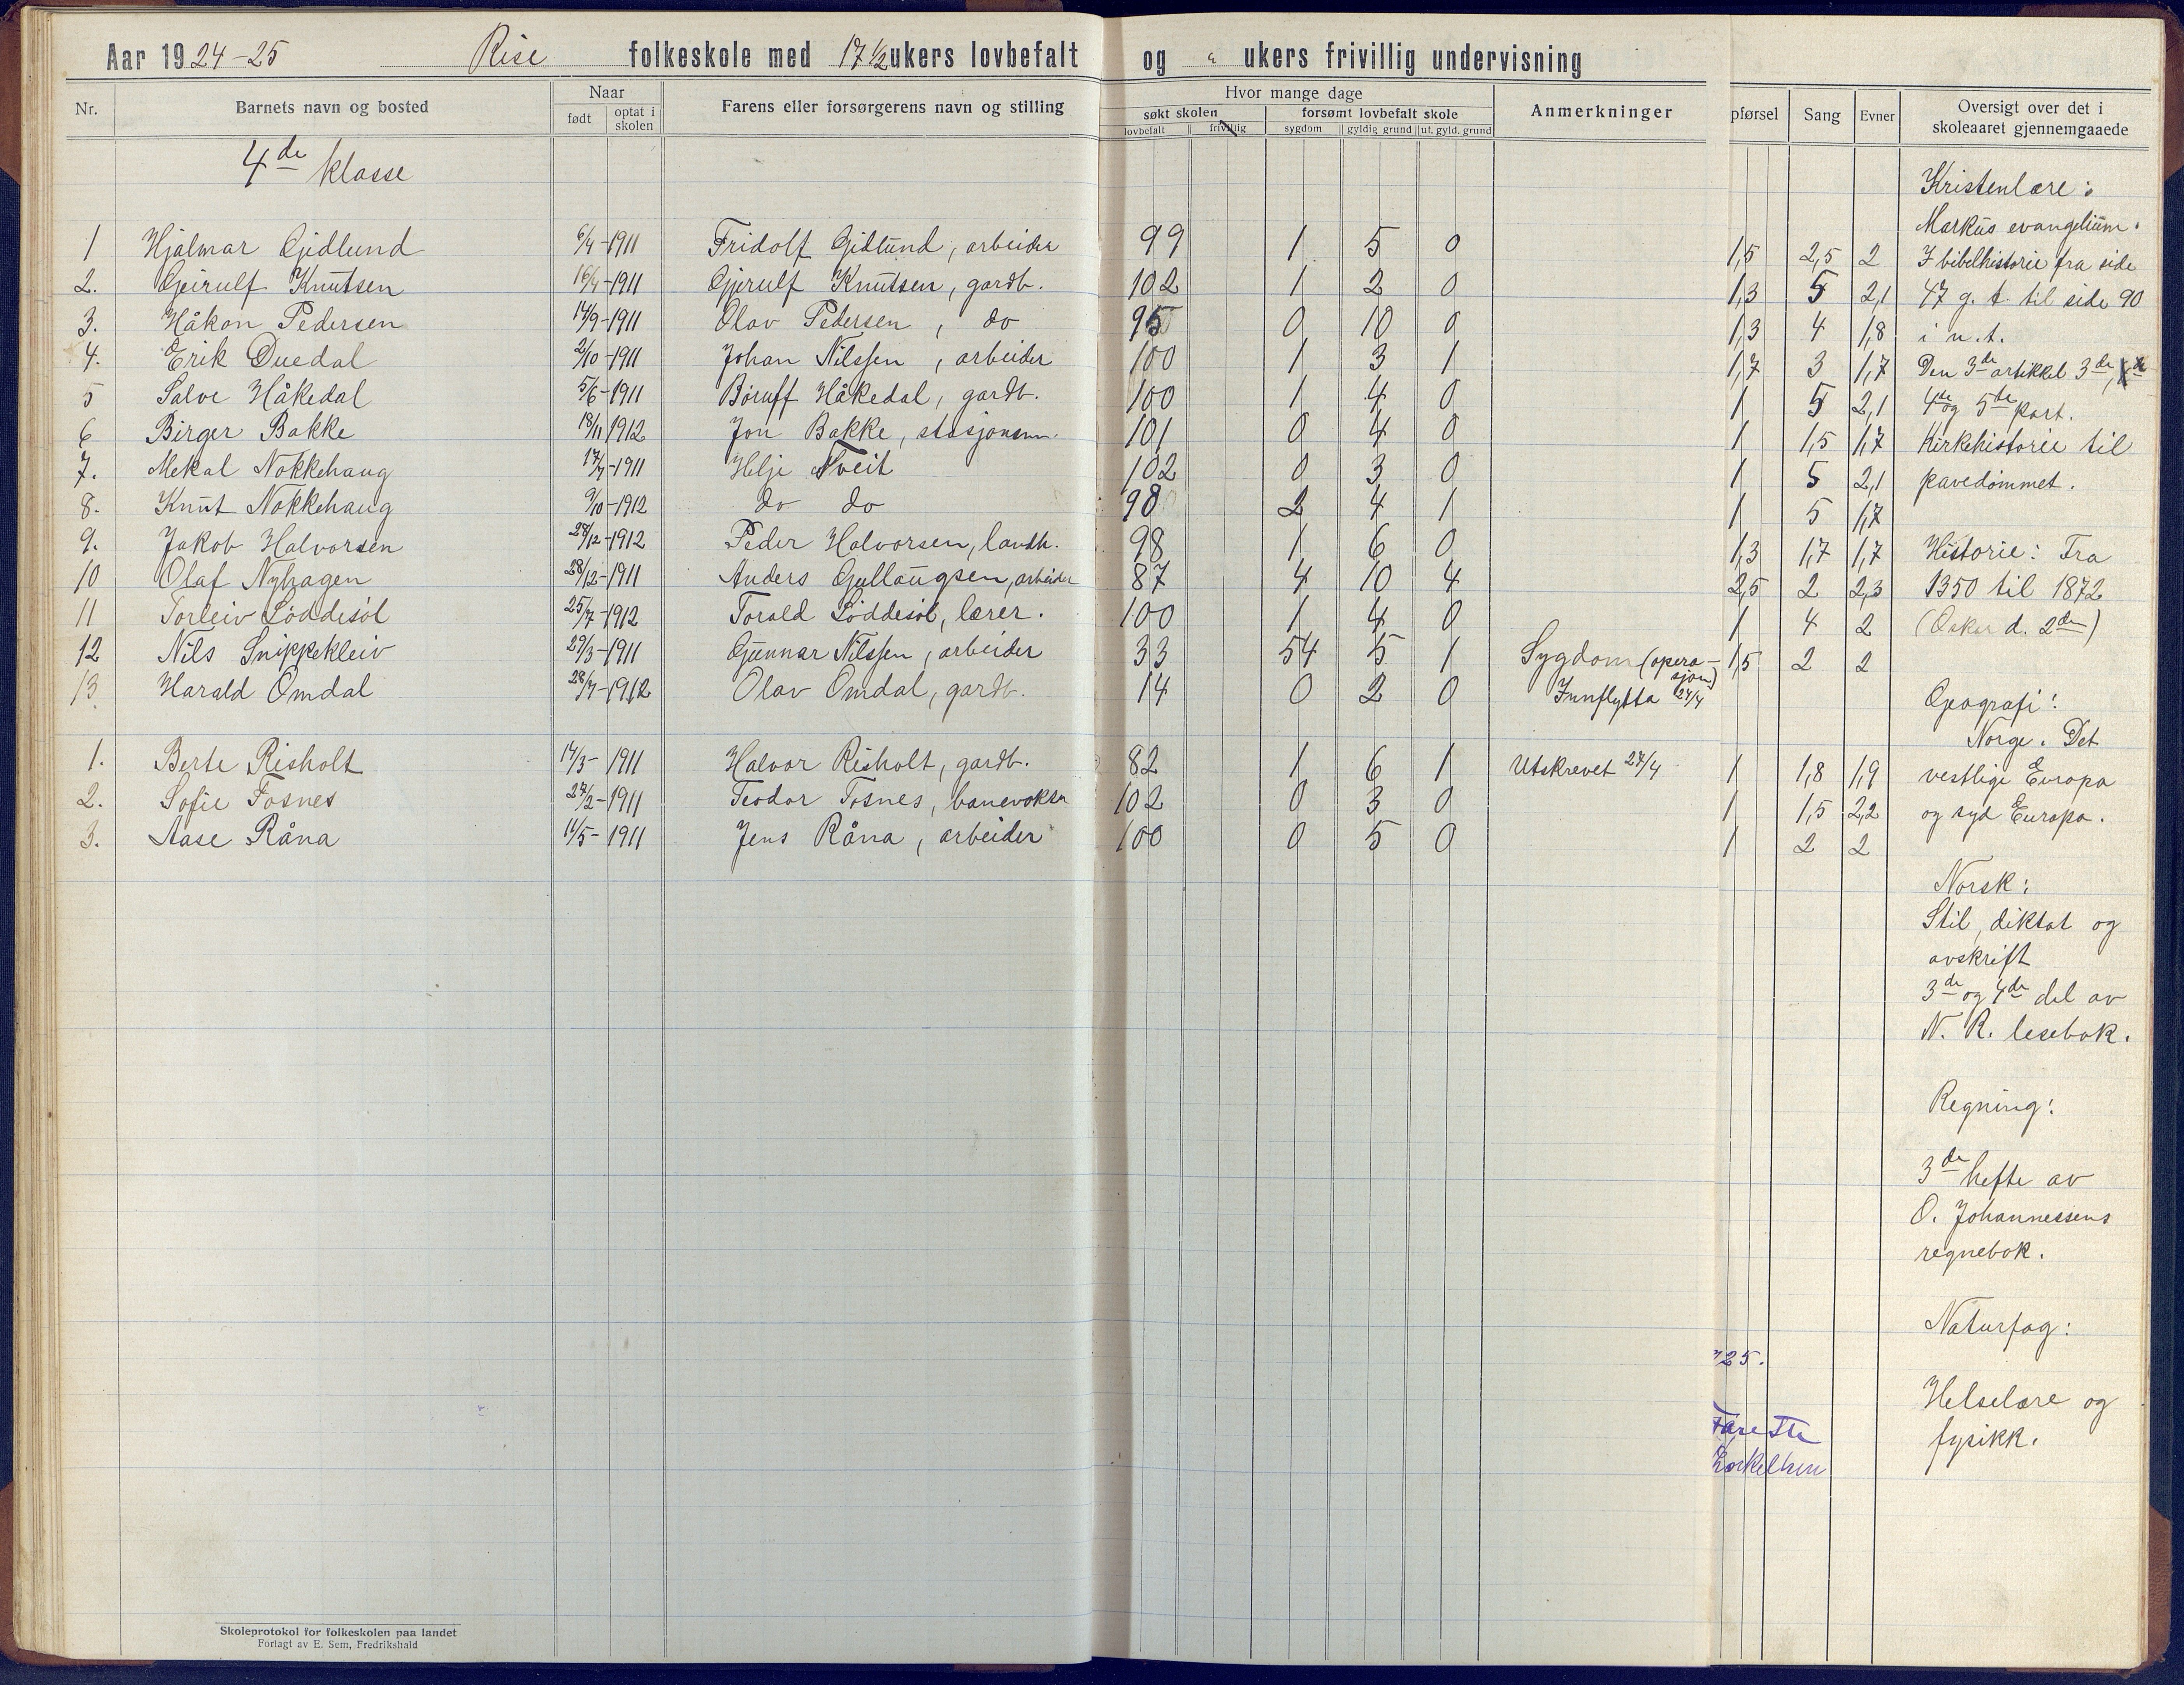 Aar 1924-25 Rise folkeskole med 17 1/2 ukers lovbefalt og " ukers frivillig undervisning
Nr. Barnets navn og bosted Naar født optat i skolen Farens eller forsørgerens navn og stilling Hvor mange dage søkt skolen lovbefalt frivillig forsømt lovbefalt skole sygdom gyldig grund ut. gyld. grund Anmerkninger pførsel Sang Evner Oversigt over det i skoleaaret gjennemgaaede
4de klasse
1 Hjalmar Gjidlund 6/4-1911 Fridolf Gidlund, arbeider 99 1 5 0 1,5 2,5 2
2. Geirulf Knutsen 16/4-1911 Gjerulf Knutsen, gardb. 102 1 2 0 1,3 5 2,1
3. Håkon Pedersen 14/9-1911 Olav Pedersen, do 95 0 10 0 1,3 4 1,8
4. Erik Duedal 2/10-1911 Johan Nilssen, arbeider 100 1 3 1 1,7 3 1,7
5 Salve Håkedal 5/6-1911 Børuff Håkedal, gardb. 100 1 4 0 1 5 2,1
6 Birger Bakke 18/11 1912 Jon Bakke, stasjonsm. 101 0 4 0 1 1,5 1,7
7. Mekal Nokkehaug 17/7-1911 Helje Tveit 102 0 3 0 1 5 2,1
8. Knut Nokkehaug 9/10-1912 do do 98 2 4 1 1 5 1,7
9. Jakob Halvorsen 28/12-1912 Peder Halvorsen, landh. 98 1 6 0 1,3 1,7 1,7
10 Olaf Nyhagen 28/12-1911 Anders Gullaugsen, arbeider 87 4 10 4 2,5 2 2,3
11 Torleiv Løddesøl 25/7-1912 Torald Løddesøl, lærer. 100 1 4 0 1 4 2
12 Nils Snippekleiv 29/3-1911 Gunnar Nilssen, arbeider 33 54 5 1 Sygdom (operasjon) 1,5 2 2
13. Harald Omdal 28/7-1912 Olav Omdal, gardb. 14 0 2 0 Innflytta 24/4
1. Berte Risholt 14/3-1911 Halvor Risholt, gardb. 82 1 6 1 Utskrevet 24/4 1 1,8 1,9
2. Sofie Fosnes 27/2-1911 Teodor Fosnes, banevokter 102 0 3 0 1 1,5 2,2
3. Aase Råna 11/5-1911 Jens Råna, arbeider 100 0 5 0 1 2 2
Kristenlære:
Markus evangelium.
I bibelhistorie fra side
47 g. t. til side 90
i n. t.
Den 3de artikkel 3de,
4de og 5te part.
Kirkehistorie til
pavedømmet.
Historie: Fra
1350 til 1872
(Oskar d. 2den)
Geografi:
Norge. Det
vestlige Europa
og syd Europa.
Norsk:
Stil, diktat og
avskrift
3de og 4de del av
N. R. lesebok.
Regning:
3de hefte av
O. Johannessens
regnebok.
Naturfag:
Helselære og
fysikk.
25.
Skoleprotokol for folkeskolen paa landet
Forlagt av E. Sem, Fredrikshald